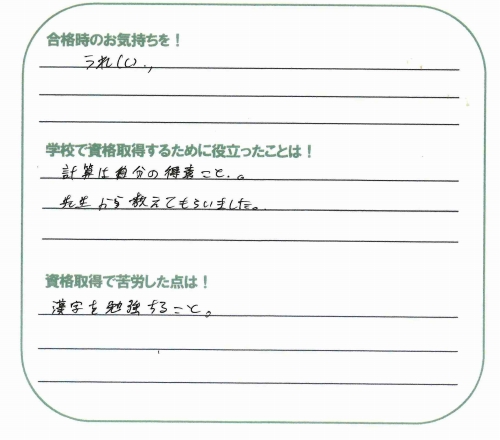 合格時のお気持ちを！
うれしい.,
学校で資格取得するために役立ったことは！
計算は自分の得意こと。
先生から教えてもらいました。
資格取得で苦労した点は！
漢字を勉強すること。